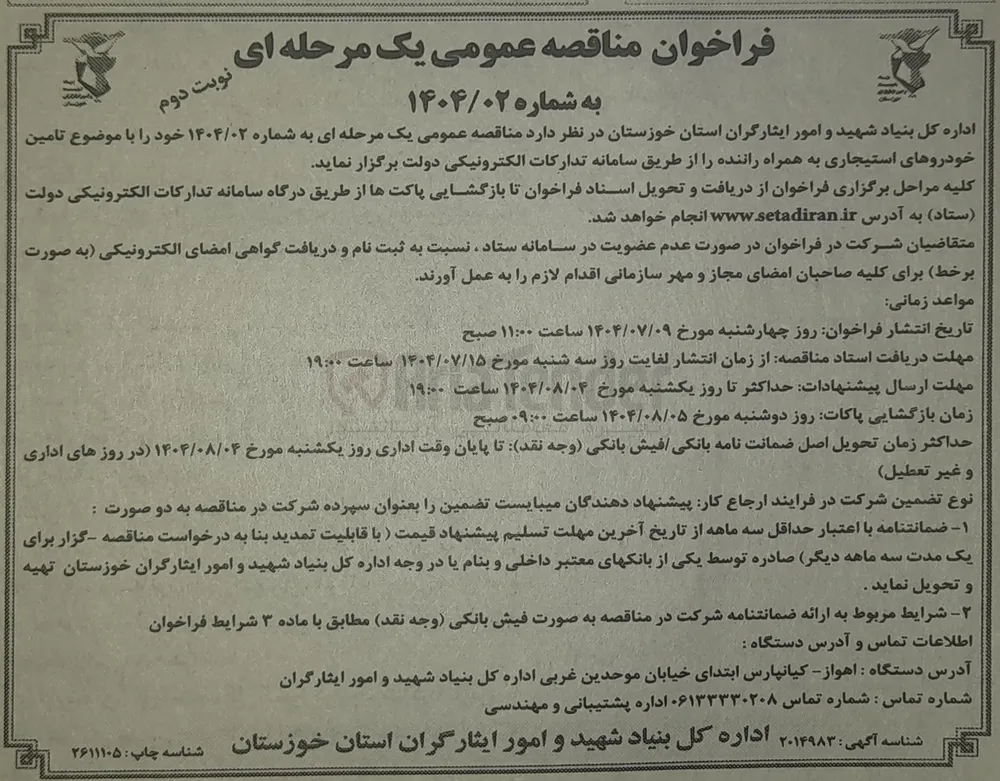 فراخوان مناقصه عمومی یک مرحله ای
نوبت دوم
به شماره ۱۴۰۴/۰۲
اداره کل بنیاد شهید و امور ایثارگران استان خوزستان در نظر دارد مناقصه عمومی یک مرحله ای به شماره ۱۴۰۴/۰۲ خود را با موضوع تامین
خودروهای استیجاری به همراه راننده را از طریق سامانه تدارکات الکترونیکی دولت برگزار نماید.
کلیه مراحل برگزاری فراخوان از دریافت و تحویل اسناد فراخوان تا بازگشایی پاکت ها از طریق درگاه سامانه تدارکات الکترونیکی دولت
(ستاد) به آدرس www.setadiran.ir انجام خواهد شد.
متقاضیان شرکت در فراخوان در صورت عدم عضویت در سامانه ستاد ، نسبت به ثبت نام و دریافت گواهی امضای الکترونیکی (به صورت
برخط) برای کلیه صاحبان امضای مجاز و مهر سازمانی اقدام لازم را به عمل آورند.
مواعد زمانی:
تاریخ انتشار فراخوان: روز چهارشنبه مورخ ۱۴۰۴/۰۷/۰۹ ساعت ۱۱:۰۰ صبح
مهلت دریافت اسناد مناقصه: از زمان انتشار لغایت روز سه شنبه مورخ ۱۴۰۴/۰۷/۱۵ ساعت ۱۹:۰۰
مهلت ارسال پیشنهادات: حداکثر تا روز یکشنبه مورخ ۱۴۰۴/۰۸/۰۴ ساعت ۱۹:۰۰
زمان بازگشایی پاکات: روز دوشنبه مورخ ۱۴۰۴/۰۸/۰۵ ساعت ۰۹:۰۰ صبح
حداکثر زمان تحویل اصل ضمانت نامه بانکی/فیش بانکی (وجه نقد): تا پایان وقت اداری روز یکشنبه مورخ ۱۴۰۴/۰۸/۰۴ (در روز های اداری
و غیر تعطیل)
نوع تضمین شرکت در فرایند ارجاع کار: پیشنهاد دهندگان میبایست تضمین را بعنوان سپرده شرکت در مناقصه به دو صورت :
۱- ضمانتنامه با اعتبار حداقل سه ماهه از تاریخ آخرین مهلت تسلیم پیشنهاد قیمت ( با قابلیت تمدید بنا به درخواست مناقصه -گزار برای
یک مدت سه ماهه دیگر) صادره توسط یکی از بانکهای معتبر داخلی و بنام یا در وجه اداره کل بنیاد شهید و امور ایثارگران خوزستان تهیه
و تحویل نماید .
۲- شرایط مربوط به ارائه ضمانتنامه شرکت در مناقصه به صورت فیش بانکی (وجه نقد) مطابق با ماده ۳ شرایط فراخوان
اطلاعات تماس و آدرس دستگاه :
آدرس دستگاه : اهواز- کیانپارس ابتدای خیابان موحدین غربی اداره کل بنیاد شهید و امور ایثارگران
شماره تماس : شماره تماس ۰۶۱۳۳۳۳۰۲۰۸ اداره پشتیبانی و مهندسی
شناسه آگهی: ۲۰۱۴۹۸۳ اداره کل بنیاد شهید و امور ایثارگران استان خوزستان شناسه چاپ: ۲۶۱۱۱۰۵